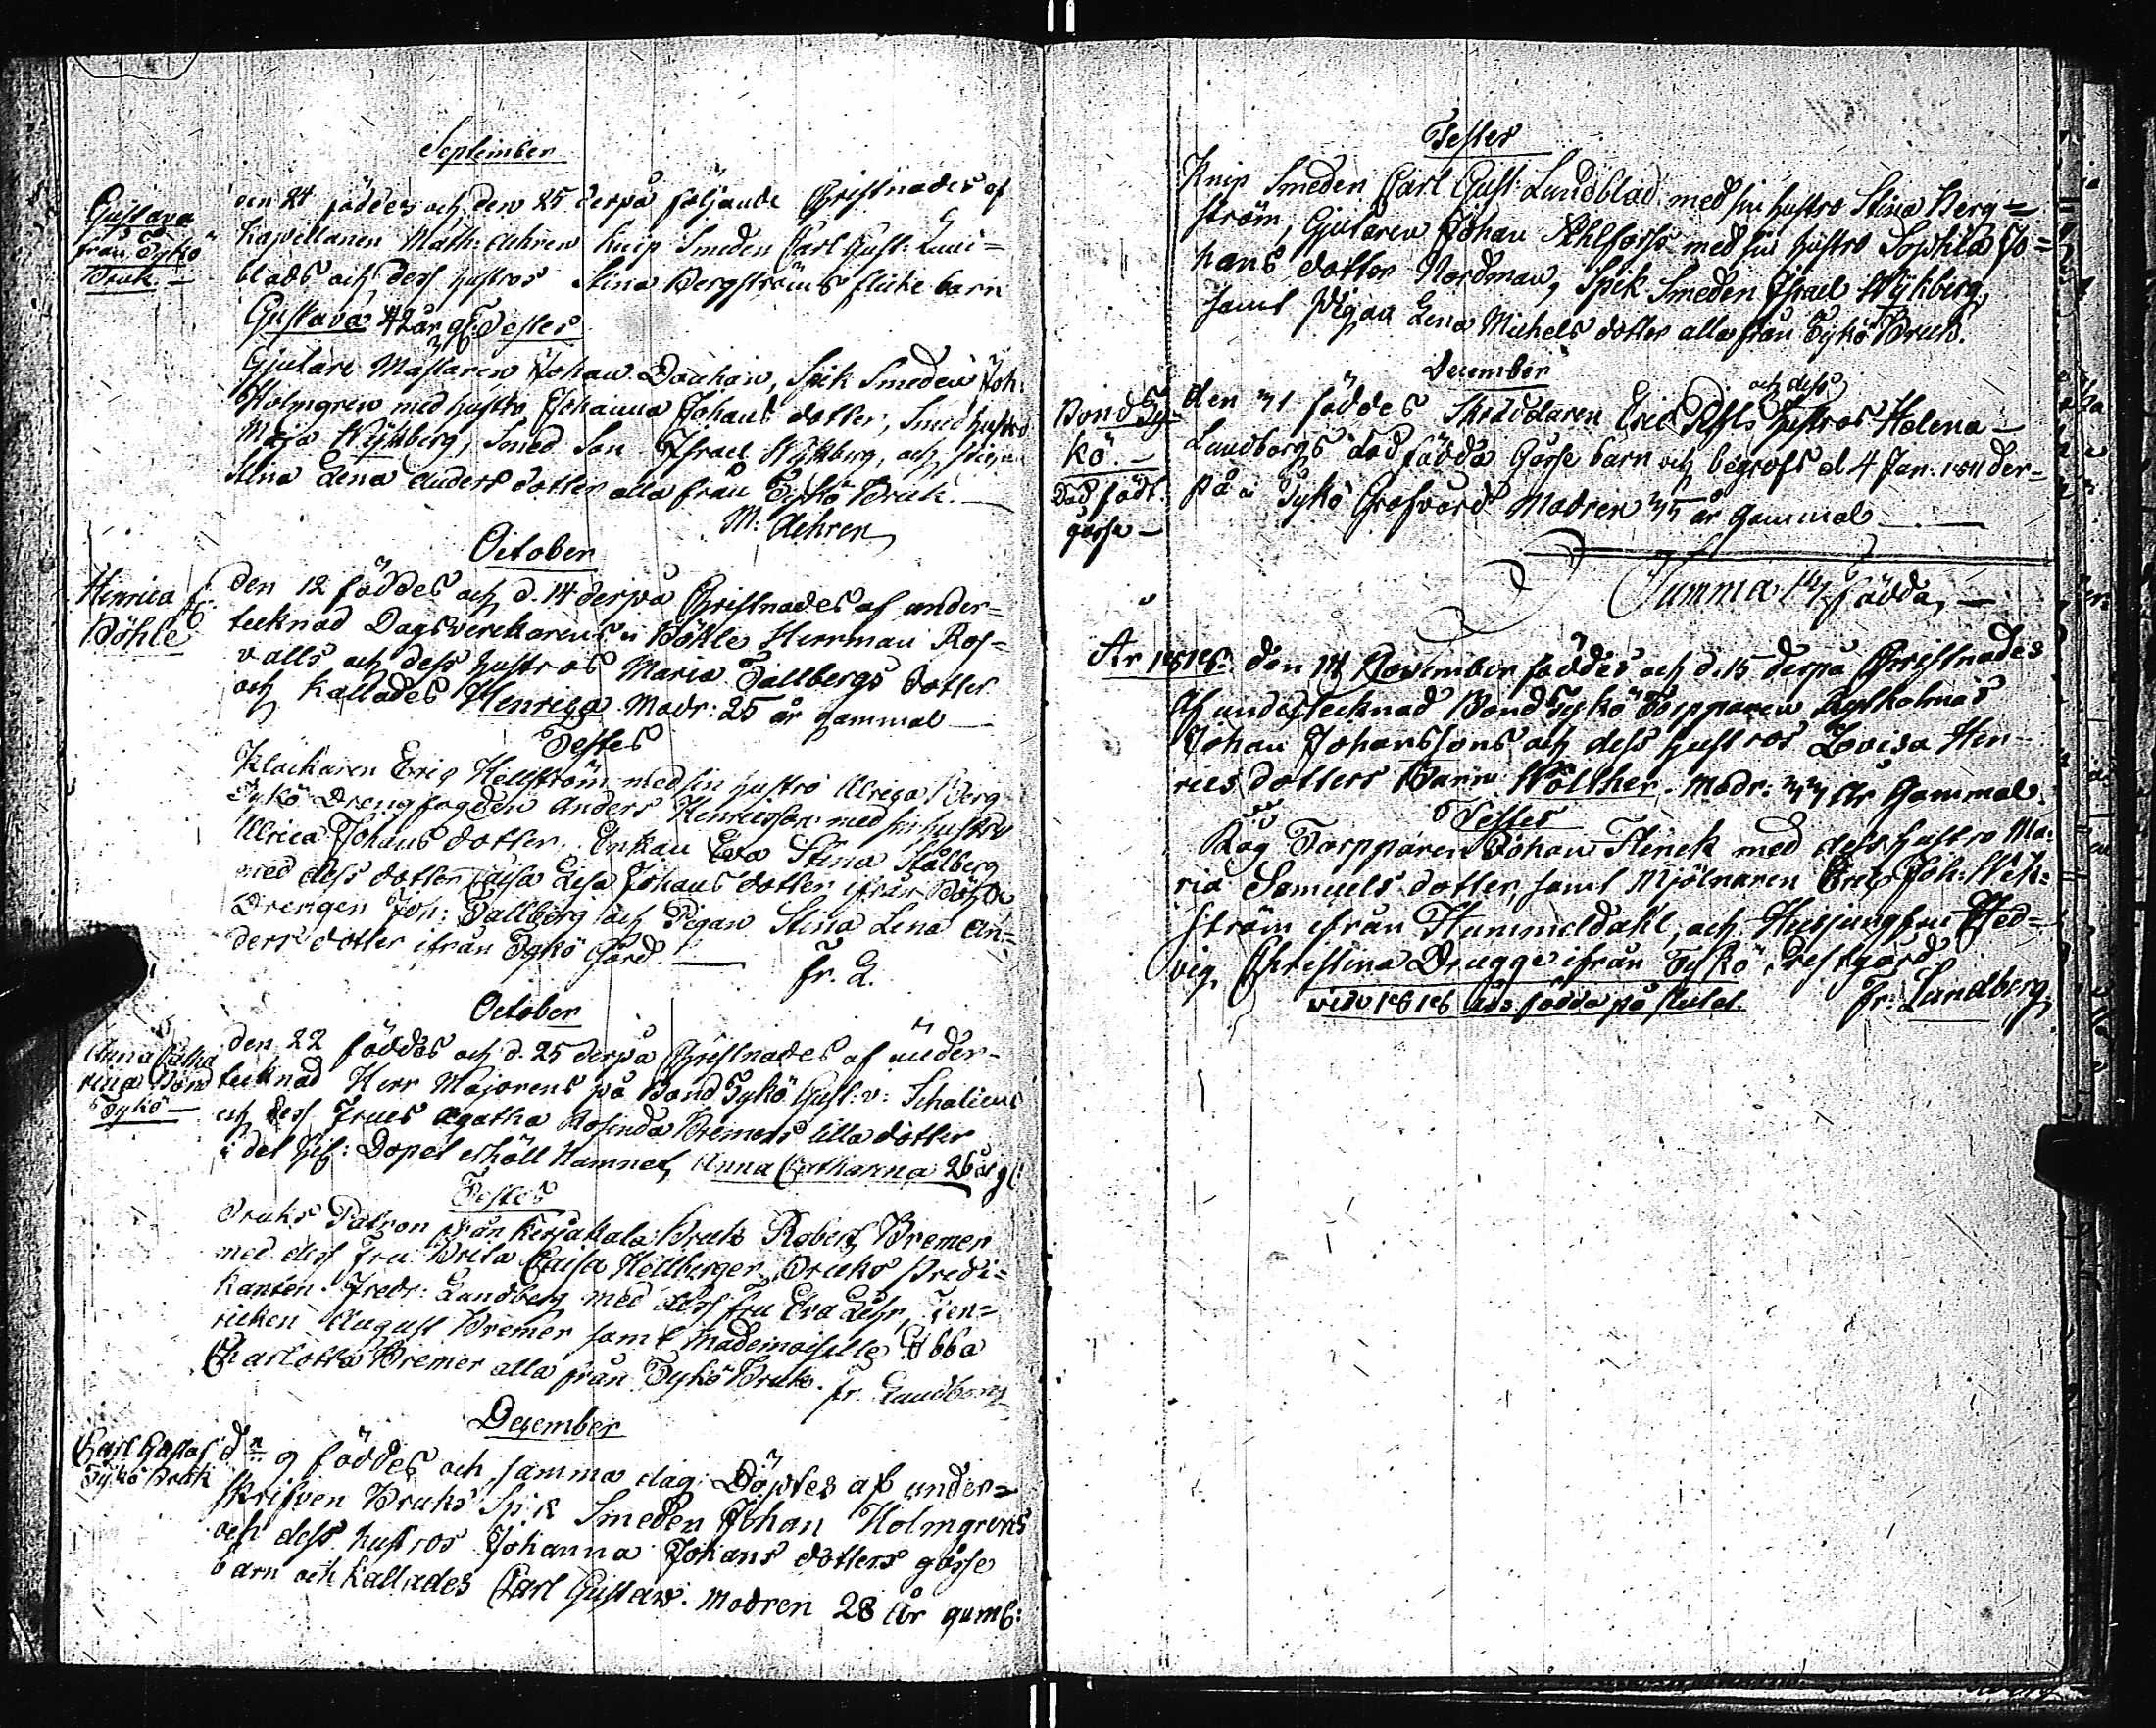 September
Gustava
från Tykö
Bruk. —
den 24 föddes och den 25 derpå följande Christnades af
Kapellanen Math: Aehren Knip Smeden Carl Gust: Lund=
blads och dess hustros Stina Bergströms flicke barn
Gustava 42 år gl. Testes
Gjutare Mästaren Johan Douhan, Spik Smeden Joh:
Holmgren med hustro Johanna Johans dotter, Smed hustro
Maja Nykberg, Smed Son Israel Nykberg, och pigan
Stina Lena Anders dotter alla från Tykö Bruk. —
M: Aehren
October
Henrica f.
Böhle
den 12 föddes och d. 14 derpå Christnades af under=
tecknad Dagsverckarens i Böhle Herrman Ros=
valls och dess hustros Maria Tallbergs dotter
och kallades Henrica. Modr: 25 år gammal —
Testes
Klockaren Eric Hellström med sin hustro Ulrica Berg
Tykö Drengfogden Anders Henricsson med sin hustro
Ulrica Johans dotter. Enkan Eva Stina Stålberg
med dess dotter Caisa Lisa Johans dotter ifrån Böhle
Drengen Joh: Tallberg och Pigan Stina Lena An=
ders dotter ifrån Tykö Gård. — Fr. L.
October
Anna Catha
rina Bond
Tykö —
den 22 föddes och d. 25 derpå Christnades af under=
tecknad Herr Majorens på Bond Tykö Gust: v: Schaliens
och dess Frues Agatha Rosinda Bremers lilla dotter
i det hel: Dopet erhöll Namnet, Anna Catharina 26 år gl
Testes
Bruks Patron från Kirjakala Bruk Robert Bremer
med dess Fru Brita Caisa Hellberger, Bruks Predi=
kanten Fredr: Lundberg med dess fru Eva Lehr, Fen=
ricken August Bremer samt Mademoiselle Ebba
Charlotta Bremer alla från Tykö Bruk. Fr. Lundberg
December
Carl Gustaf
Tykö Bruk
dn 9 föddes och samma dag Döptes af under=
skrifven Bruks Spik Smeden Johan Holmgrens
och dess hustros Johanna Johans dotters gosse
barn och kallades Carl Gustav. Modren 28 år gaml:
Testes
Knip Smeden Carl Gust: Lundblad med sin hustro Stina Berg=
ström, Gjutaren Johan Ahlforss med sin hustro Sophia Jo=
hans dotter Nordman, Spik Smeden Israel Nykberg,
samt Pigan Lena Michels dotter alla från Tykö Bruk.
December
Bond Ty=
kö. —
Död född
gosse —
den 31 föddes Skräddaren Eric och dess hustros Helena
Lundborgs död födda Gosse barn och begrofs d. 4 Jan. 1811 der=
på i Tykö Grafvård Modren 35 år gammal —
Summa 14 födda, —
År 1816. den 14 November föddes och d. 15 derpå Christnades
af undertecknad Bond Tykö Torpparen Rylholmas
Johan Johanssons och dess hustros Lovisa Hen=
rics dotters Barn Wolther. Modr: 33 År Gammal.
Testes
Råg Torpparen Johan Flinck med dess hustro Ma=
ria Samuels dotter, samt Mjölnaren Eric Joh: Wek=
ström ifrån Hummeldahl, och Husjungfru Hed=
vig Christina Drugge ifrån Tykö Prestgård
vidv 1816 åss födda på slutet. Fr: Lundberg